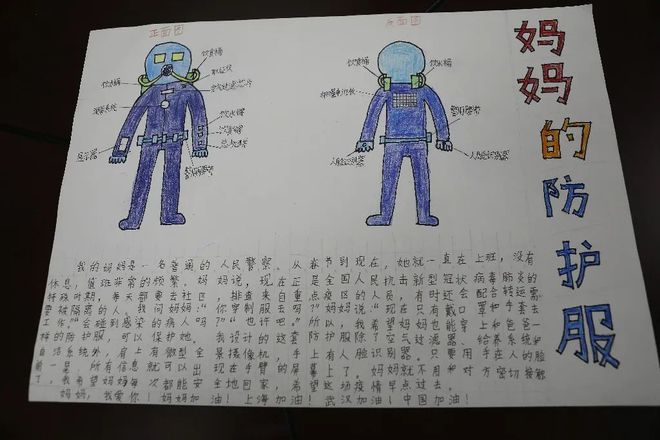 正面图
反面图
妈妈的防护服
饮食桶
饮水桶
饮食桶
饮水桶
警用腰带
人脸识别器
人脸识别器
显示器
警用腰带
我的妈妈是一名普通的人民警察、从春节到现在,她就一直在上班,没有
休息,值班非常的频繁。妈妈说,现在正是全国人民抗击新型冠状病毒肺炎的
特殊时期,每天都要去社区,排查来自重点疫区的人员,有时还会配合转运需
要被隔离的人,我问妈妈:“你穿制服去吗?”妈妈说:“现在只有戴口罩和手套去
工作。”“会碰到感染的病人吗?”“也许吧!”所以,我希望妈妈也能穿上和爸爸一
样的防护服,可以保护她。我设计的这套防护服除了空气过滤器、给养系统和
自洁系统外,肩上有微型全景摄像机,手上有人脸识别器。只要用手在人的脸
前一晃,所有信息就可以出现在手臂的屏幕上了,妈妈就不用和对方密切接触
了。我希望妈妈每次都能安全地回家,希望这场疫情早点过去。
妈妈,我爱你!妈妈加油!上海加油!武汉加油!中国加油!